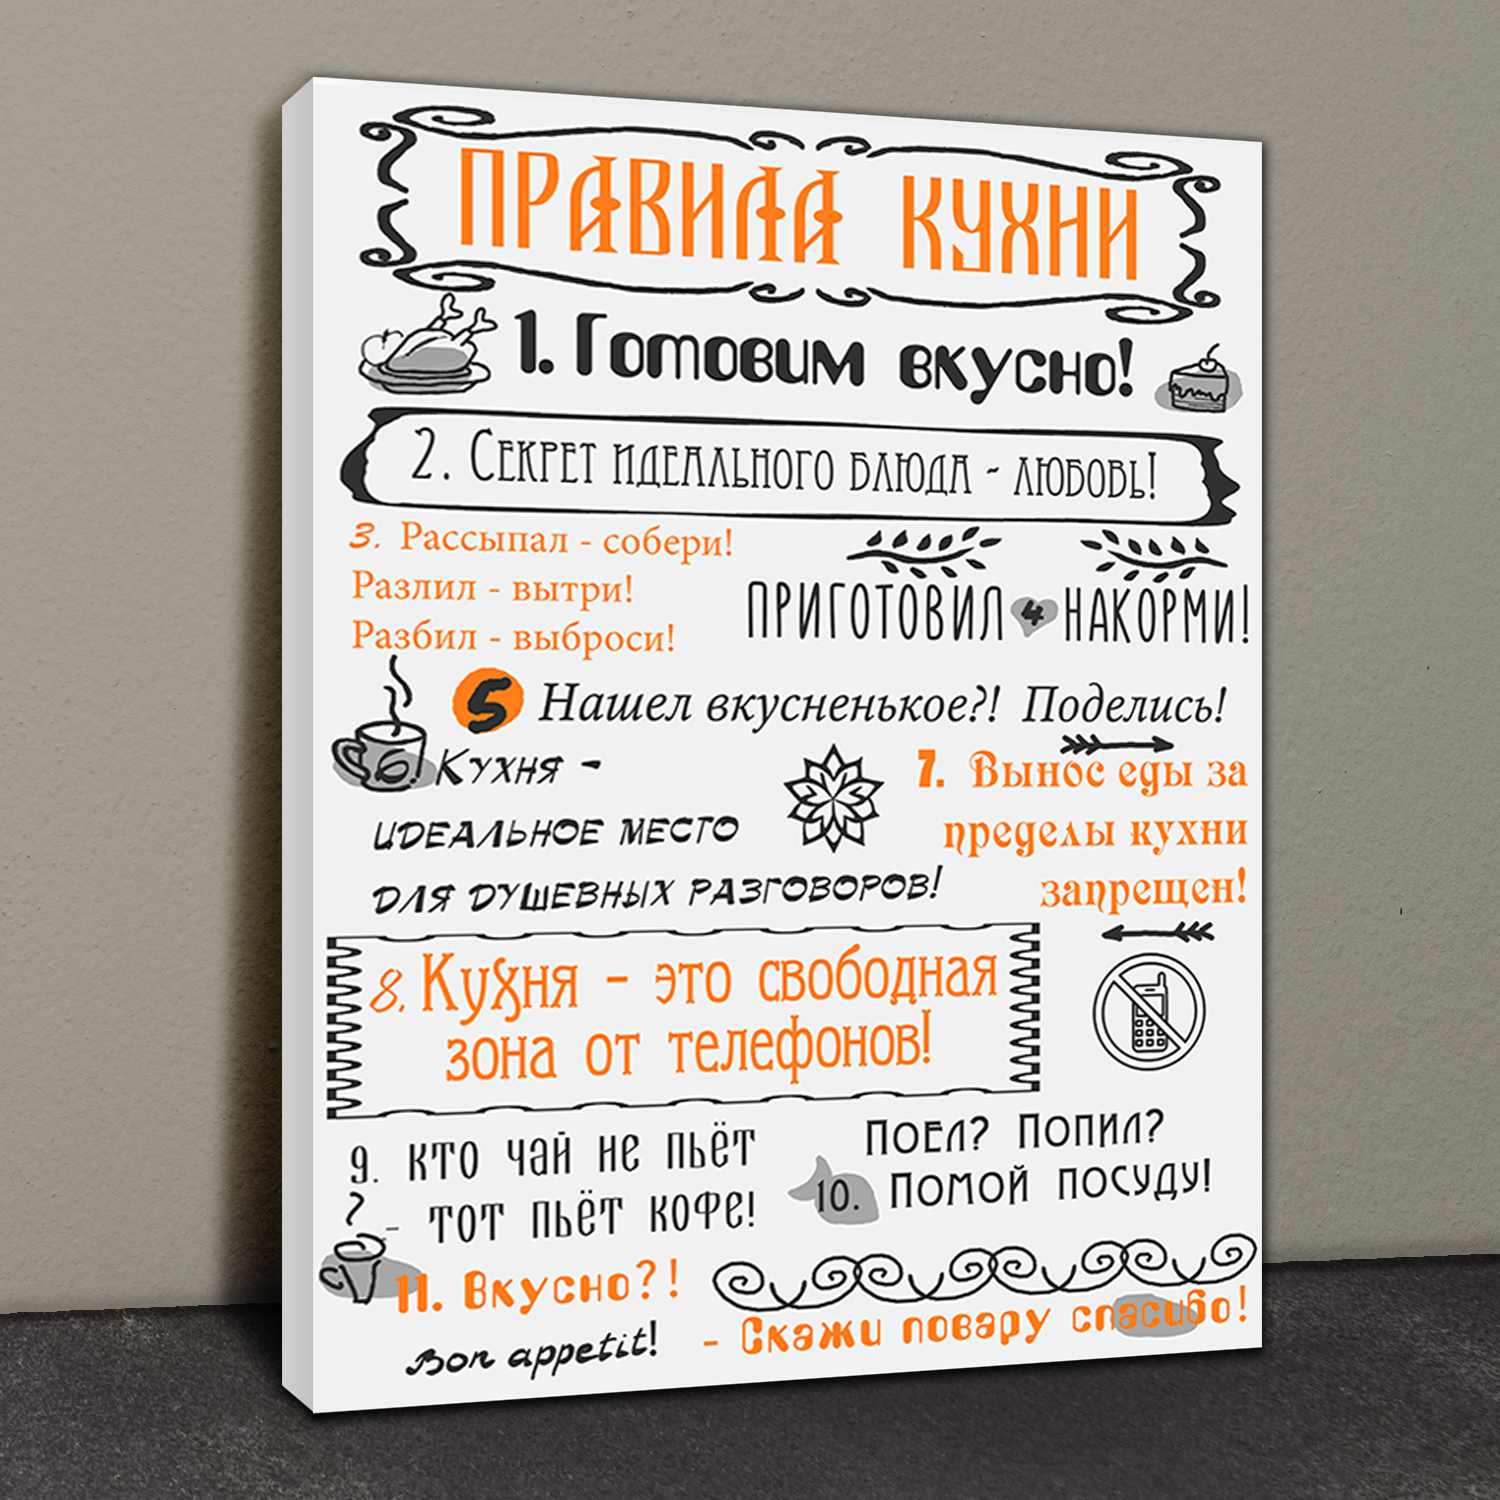 ПРАВИЛА КУХНИ
1. Готовим вкусно!
2. Секрет идеального блюда - любовь!
3. Рассыпал - собери!
Разлил - вытри!
Разбил - выброси!
ПРИГОТОВИЛ 4 НАКОРМИ!
5 Нашел вкусненькое?! Поделись!
6. Кухня -
идеальное место
для душевных разговоров!
7. Вынос еды за
пределы кухни
запрещен!
8. Кухня - это свободная
зона от телефонов!
9. кто чай не пьёт
- тот пьёт кофе!
10. Поел? Попил?
Помой посуду!
11. Вкусно?!
- Скажи повару спасибо!
Bon appetit!